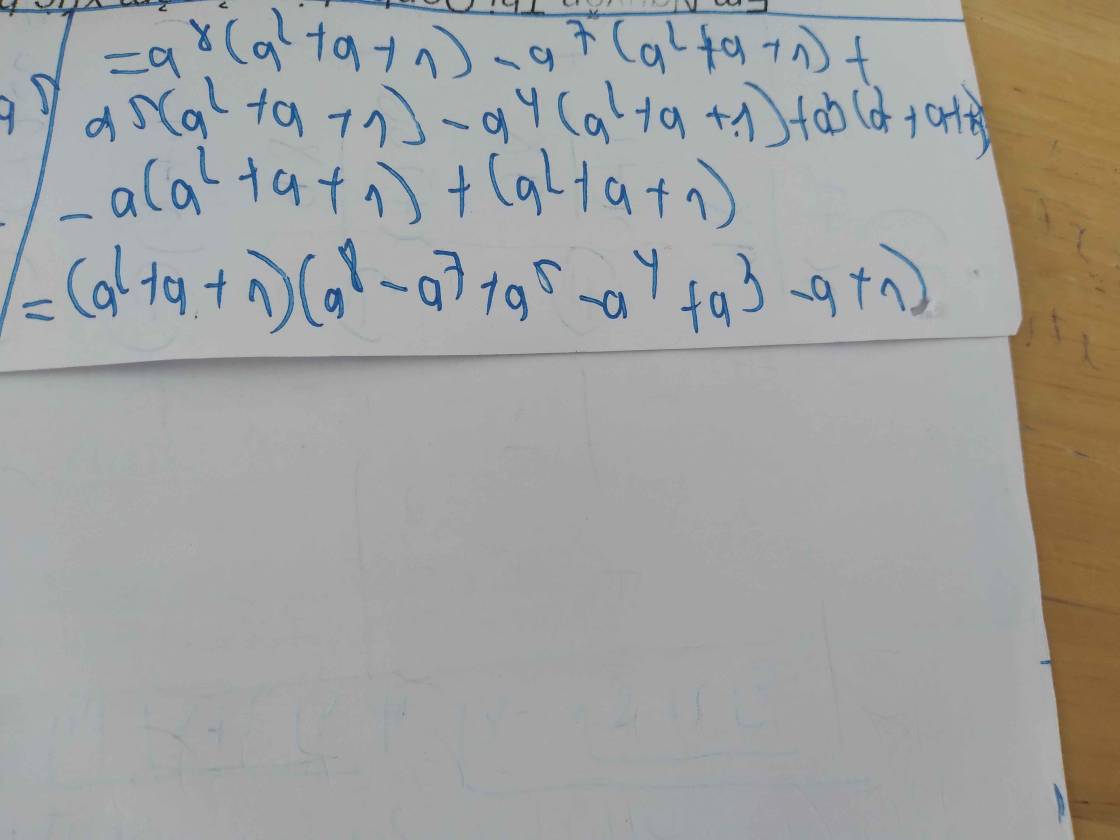 =a⁸(a²+a+1)-a⁷(a²+a+1)+
a⁵(a²+a+1)-a⁴(a²+a+1)+a³(a²+a+1)
-a(a²+a+1)+(a²+a+1)
=(a²+a+1)(a⁸-a⁷+a⁵-a⁴+a³-a+1)